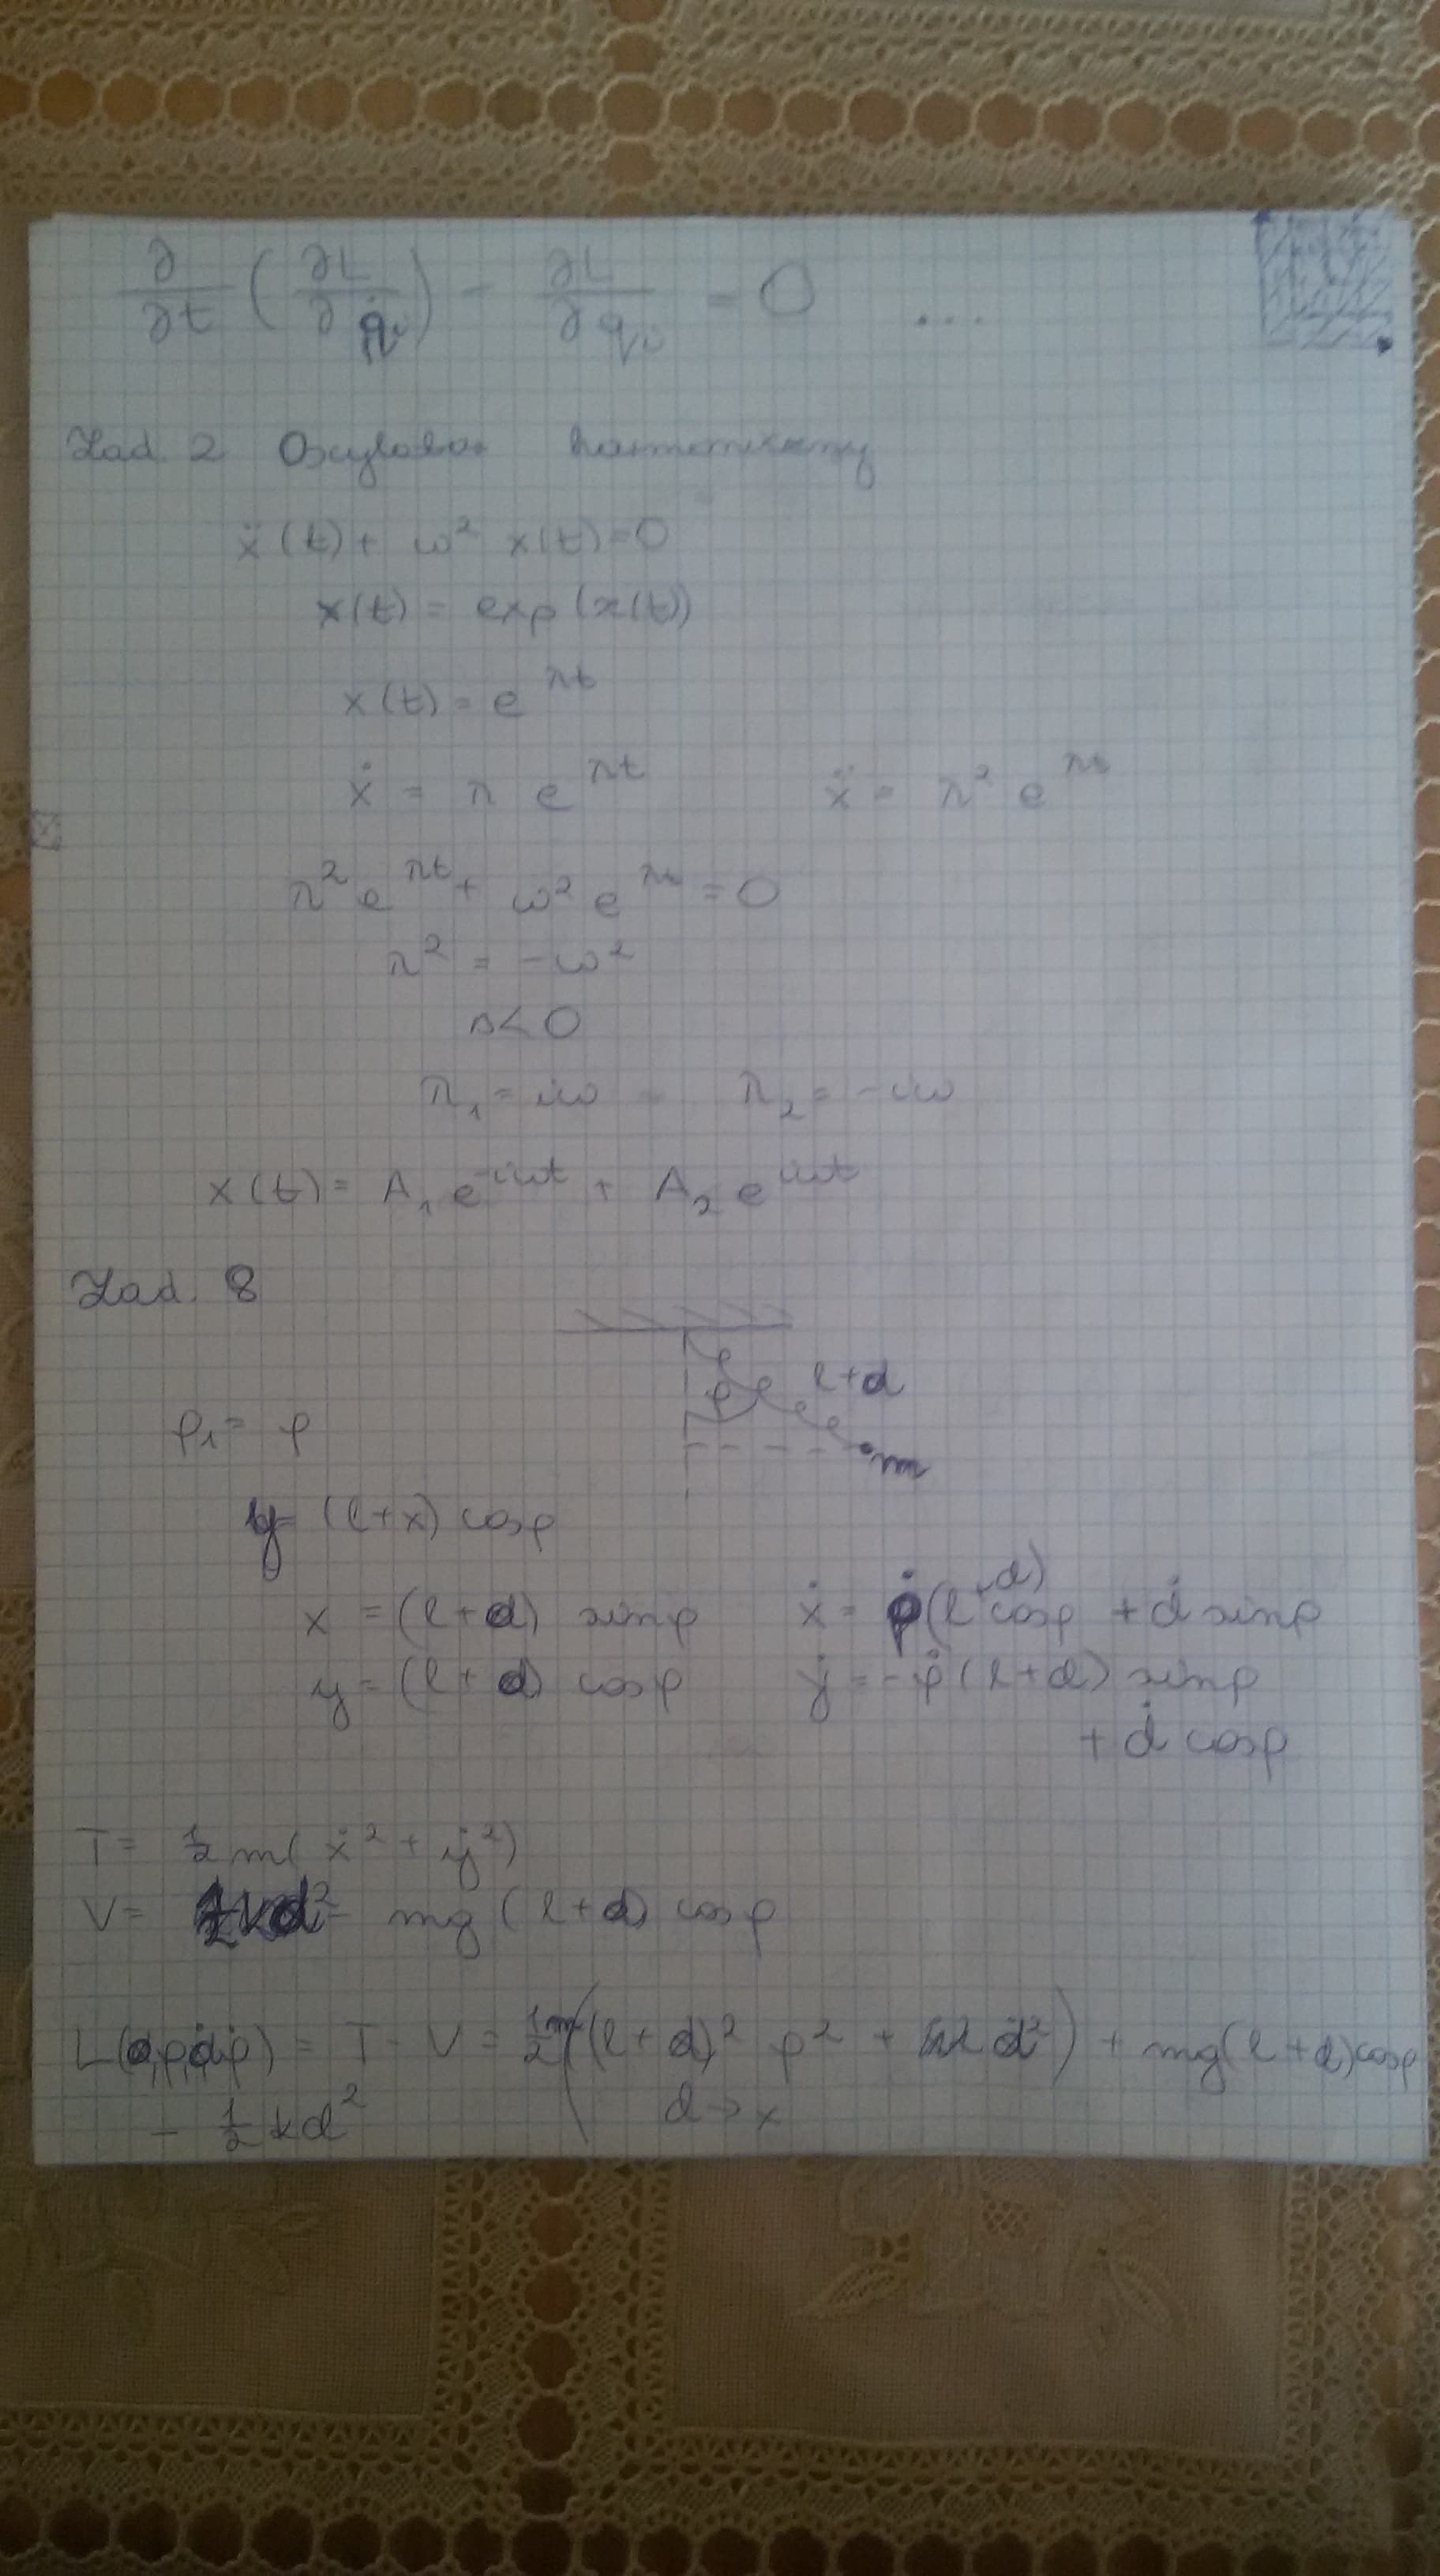 ∂/∂t (∂L/∂q̇ᵢ) - ∂L/∂qᵢ = 0 ...
Zad. 2 Oscylator harmoniczny
ẍ(t) + ω² x(t) = 0
x(t) = exp(r(t))
x(t) = e^{rt}
ẋ = r e^{rt} ẍ = r² e^{rt}
r² e^{rt} + ω² e^{rt} = 0
r² = -ω²
Δ < 0
r₁ = iω r₂ = -iω
x(t) = A₁ e^{-iωt} + A₂ e^{iωt}
Zad. 8
l+d
φ
m
φ₁ = φ
y = (l+x) cosφ
x = (l+d) sinφ ẋ = φ̇(l+d) cosφ + ḋ sinφ
y = (l+d) cosφ ẏ = -φ̇(l+d) sinφ
+ ḋ cosφ
T = ½ m(ẋ² + ẏ²)
V = ½kd² - mg(l+d) cosφ
L(d,φ,ḋ,φ̇) = T - V = ½m((l+d)² φ² + ḋ²) + mg(l+d)cosφ
- ½ kd² d → x